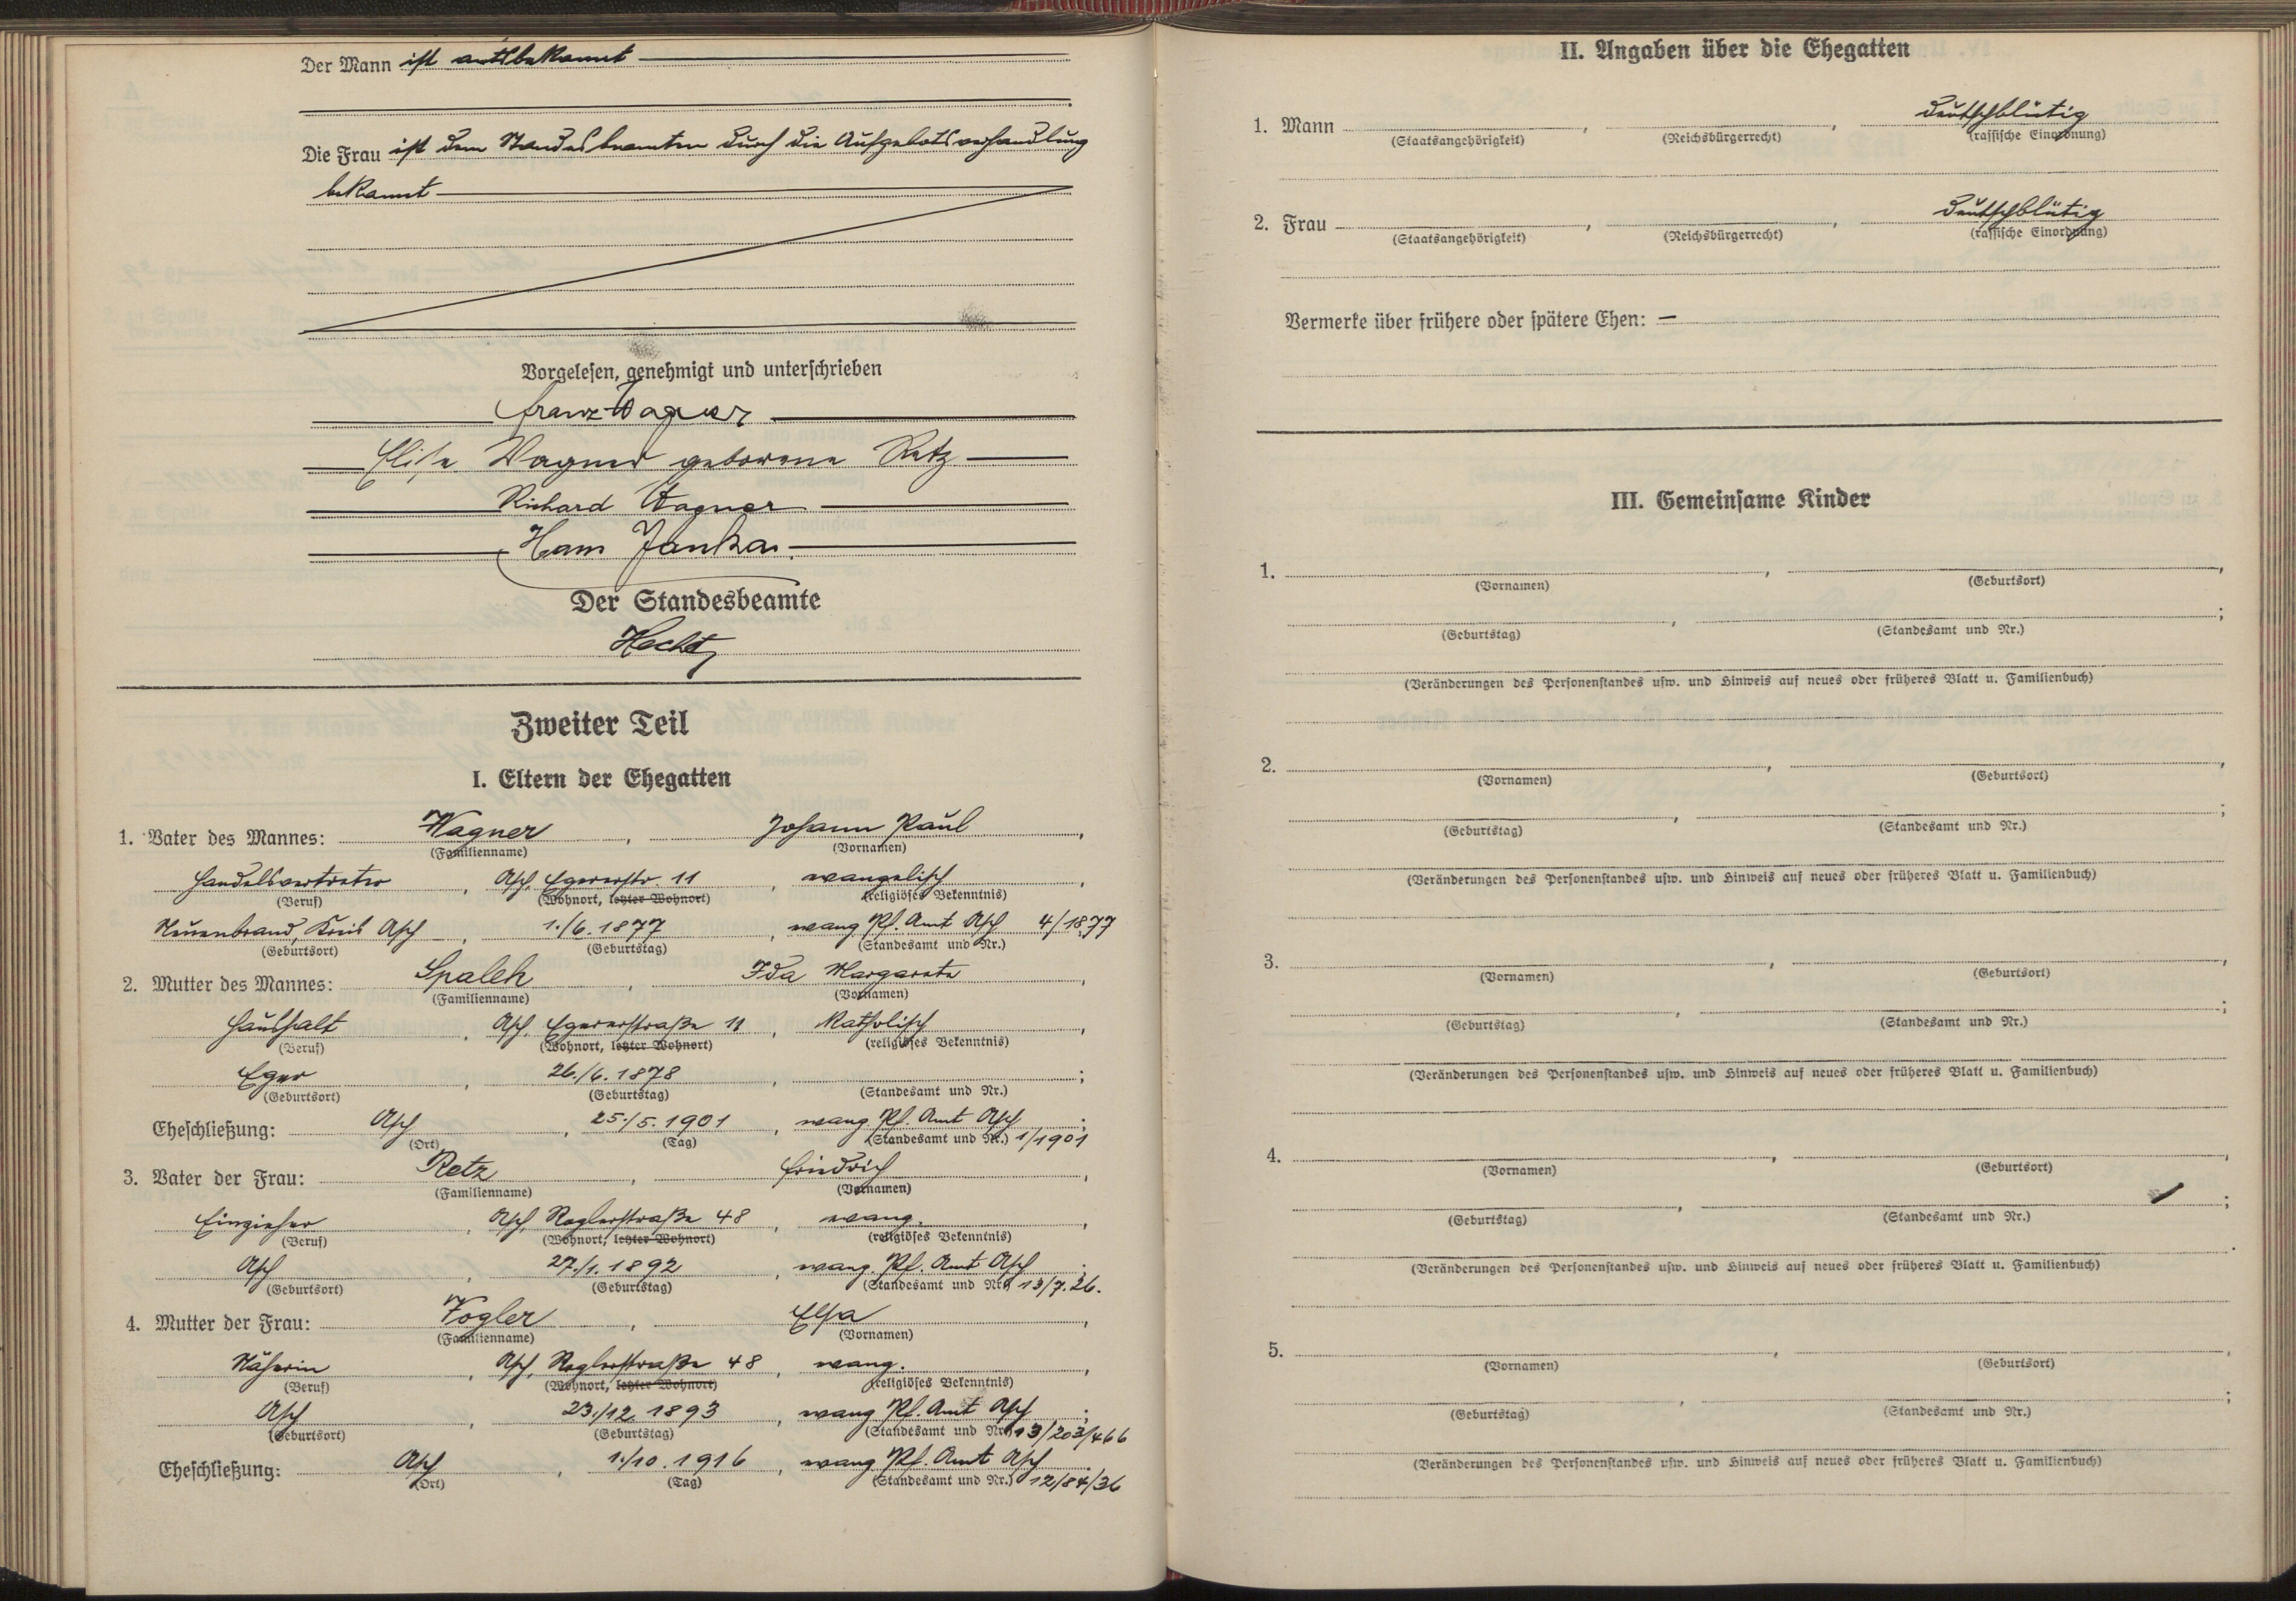 Der Mann ist amtsbekannt
Die Frau ist dem Standesbeamten durch die Aufgebotsverhandlung
bekannt
Vorgelesen, genehmigt und unterschrieben
Franz Wagner
Elise Wagner geborene Retz
Richard Wagner
Hans Janka
Der Standesbeamte
Hecht
Zweiter Teil
I. Eltern der Ehegatten
1. Vater des Mannes: Wagner, Johann Paul,
(Familienname) (Vornamen)
Handelsvertreter, Asch, Egererstr. 11, evangelisch,
(Beruf) (Wohnort, letzter Wohnort) (religiöses Bekenntnis)
Neuenbrand, Kreis Asch, 1./6. 1877, evang. Pf. Amt Asch 4/1877
(Geburtsort) (Geburtstag) (Standesamt und Nr.)
2. Mutter des Mannes: Spalek, Ida Margareta,
(Familienname) (Vornamen)
Haushalt, Asch, Egererstraße 11, katholisch,
(Beruf) (Wohnort, letzter Wohnort) (religiöses Bekenntnis)
Eger, 26./6. 1878, ;
(Geburtsort) (Geburtstag) (Standesamt und Nr.)
Eheschließung: Asch, 25./5. 1901, evang. Pf. Amt Asch;
(Ort) (Tag) (Standesamt und Nr.) 1/1901
3. Vater der Frau: Retz, Friedrich,
(Familienname) (Vornamen)
Einzieher, Asch, Roglerstraße 48, evang.,
(Beruf) (Wohnort, letzter Wohnort) (religiöses Bekenntnis)
Asch, 27./1. 1892, evang. Pf. Amt Asch;
(Geburtsort) (Geburtstag) (Standesamt und Nr.) 13/7.26.
4. Mutter der Frau: Vogler, Elsa,
(Familienname) (Vornamen)
Näherin, Asch, Roglerstraße 48, evang.,
(Beruf) (Wohnort, letzter Wohnort) (religiöses Bekenntnis)
Asch, 23./12. 1893, evang. Pf. Amt Asch;
(Geburtsort) (Geburtstag) (Standesamt und Nr.) 13/203/466
Eheschließung: Asch, 1./10. 1916, evang. Pf. Amt Asch.
(Ort) (Tag) (Standesamt und Nr.) 12/84/36
II. Angaben über die Ehegatten
1. Mann , , deutschblütig
(Staatsangehörigkeit) (Reichsbürgerrecht) (rassische Einordnung)
2. Frau , , deutschblütig
(Staatsangehörigkeit) (Reichsbürgerrecht) (rassische Einordnung)
Vermerke über frühere oder spätere Ehen: —
III. Gemeinsame Kinder
1. , ,
(Vornamen) (Geburtsort)
, ;
(Geburtstag) (Standesamt und Nr.)
(Veränderungen des Personenstandes usw. und Hinweis auf neues oder früheres Blatt u. Familienbuch)
2. , ,
(Vornamen) (Geburtsort)
, ;
(Geburtstag) (Standesamt und Nr.)
(Veränderungen des Personenstandes usw. und Hinweis auf neues oder früheres Blatt u. Familienbuch)
3. , ,
(Vornamen) (Geburtsort)
, ;
(Geburtstag) (Standesamt und Nr.)
(Veränderungen des Personenstandes usw. und Hinweis auf neues oder früheres Blatt u. Familienbuch)
4. , ,
(Vornamen) (Geburtsort)
, ;
(Geburtstag) (Standesamt und Nr.)
(Veränderungen des Personenstandes usw. und Hinweis auf neues oder früheres Blatt u. Familienbuch)
5. , ,
(Vornamen) (Geburtsort)
, ;
(Geburtstag) (Standesamt und Nr.)
(Veränderungen des Personenstandes usw. und Hinweis auf neues oder früheres Blatt u. Familienbuch)